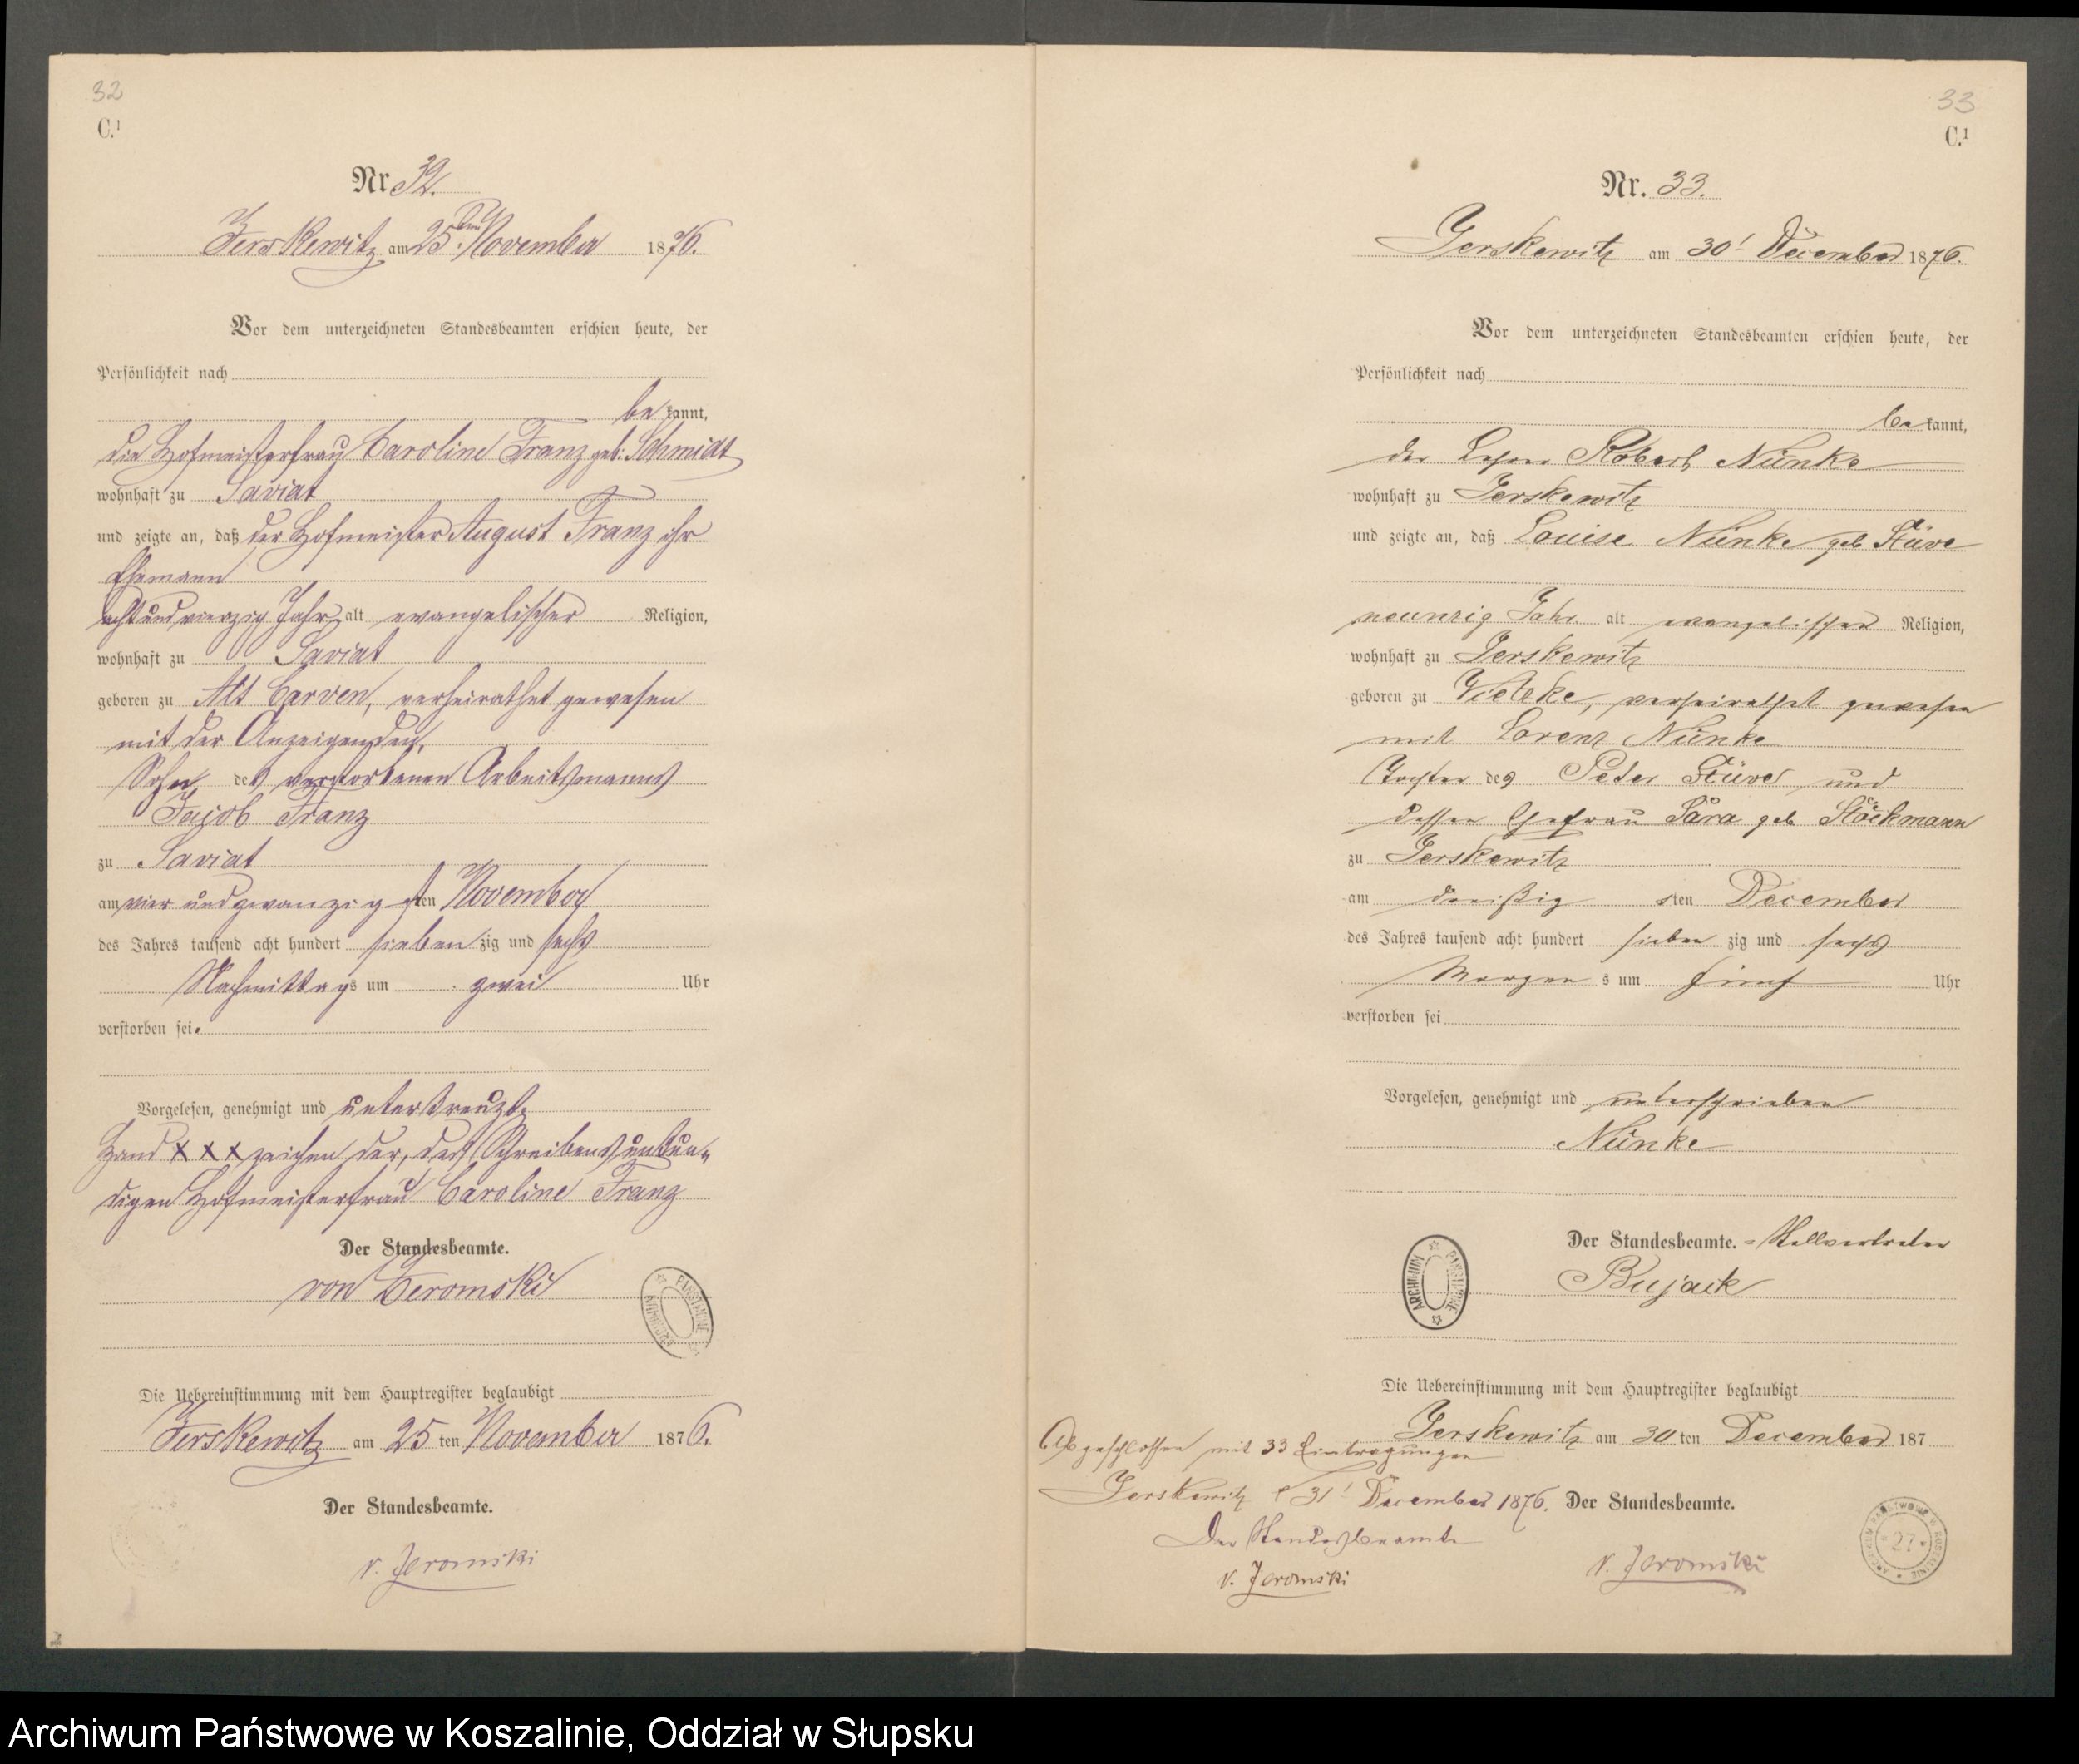 32
C.¹
Nr. 32.
Jerskewitz am 25ten November 1876.
Vor dem unterzeichneten Standesbeamten erschien heute, der
Persönlichkeit nach
bekannt,
die Hofmeisterfrau Caroline Franz geb: Schmidt
wohnhaft zu Saviat
und zeigte an, daß der Hofmeister August Franz ihr
Ehemann
achtundvierzig Jahr alt evangelischer Religion,
wohnhaft zu Saviat
geboren zu Alt Carven, verheirathet gewesen
mit der Anzeigenden,
Sohn des verstorbenen Arbeitsmanns
Jacob Franz
zu Saviat
am vier und zwanzigsten November
des Jahres tausend acht hundert siebenzig und sechs
Nachmittags um zwei Uhr
verstorben sei.
Vorgelesen, genehmigt und unterkreuzt.
Hand x x x zeichen der, des Schreibens unkun-
digen Hofmeisterfrau Caroline Franz
Der Standesbeamte.
von Jeromski
ARCHIWUM PAŃSTWOWE
Die Uebereinstimmung mit dem Hauptregister beglaubigt
Jerskewitz am 25 ten November 1876.
Der Standesbeamte.
v. Jeromski
33
C.¹
Nr. 33.
Jerskewitz am 30t December 1876.
Vor dem unterzeichneten Standesbeamten erschien heute, der
Persönlichkeit nach
bekannt,
der Lehrer Robert Nünke
wohnhaft zu Jerskewitz
und zeigte an, daß Louise Nünke geb Stüve
neunzig Jahr alt evangelischer Religion,
wohnhaft zu Jerskewitz
geboren zu Vietzke, verheirathet gewesen
mit Lorenz Nünke
Tochter des Peter Stüve und
dessen Ehefrau Sara geb Stöckmann
zu Jerskewitz
am dreißig sten December
des Jahres tausend acht hundert sieben zig und sechs
Morgen s um fünf Uhr
verstorben sei
Vorgelesen, genehmigt und unterschrieben
Nünke
Der Standesbeamte. - Stellvertreter
Bujack
ARCHIWUM PAŃSTWOWE
Die Uebereinstimmung mit dem Hauptregister beglaubigt
Jerskewitz am 30 ten December 187
Abgeschlossen mit 33 Eintragungen
Jerskewitz d 31t December 1876.
Der Standesbeamte
v. Jeromski
Der Standesbeamte.
v. Jeromski
27
Archiwum Państwowe w Koszalinie, Oddział w Słupsku